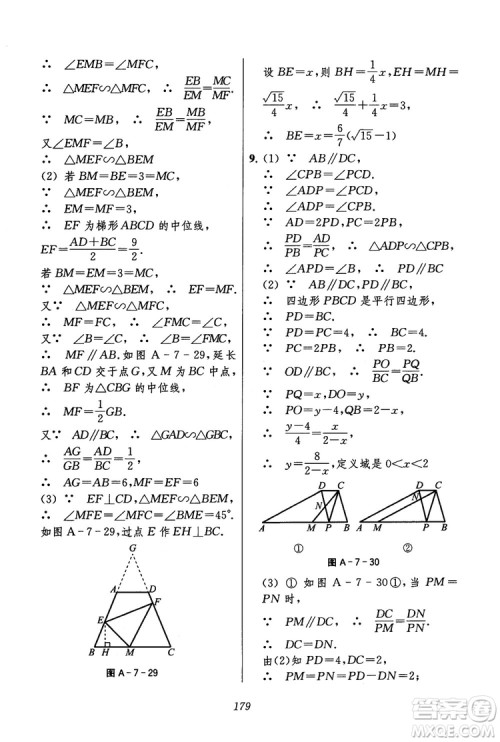 ∴ ∠EMB=∠MFC,
∴ △MEF∽△MFC, ∴ EB/EM=MC/MF.
∵ MC=MB, ∴ EB/EM=MB/MF,
又∠EMF=∠B,
∴ △MEF∽△BEM
(2) 若 BM=BE=3=MC,
∴ EM=MF=3,
∴ EF 为梯形 ABCD 的中位线,
EF=AD+BC/2=9/2.
若 BM=EM=3=MC,
又∵ △MEF∽△BEM,
∴ MF=FC, ∴ ∠FMC=∠C=∠B,
∴ MF∥AB. 如图 A-7-29, 延长
BA 和 CD 交于点 G, 又 M 为 BC 中点,
∴ BF 为△CBG 的中位线,
∴ MF=1/2GB.
又∵ AD∥BC, ∴ △AGD∽△BGC,
∴ AG/GB=AD/BC=3/6, ∴ AG/AB=1,
∴ AG=AB=6, MF=EF=6
(3) ∵ EF⊥CD, △MEF∽△MFC,
∴ ∠MFE=∠MFC=∠BME=45°.
如图 A-7-29, 过点 E 作EH⊥BC.
G
A D
E F
B H M C
图 A-7-29
设 BE=x, 则 BH=1/4x, EH=MH=
√15/4x ∴ √15/4x+1/4x=3,
∴ BE=x=6/7(√15-1)
9. (1) ∵ AB∥DC,
∴ ∠CPB=∠PCD.
∵ ∠ADP=∠PCD,
∴ ∠ADP=∠CPB.
∵ AD=2PD, PC=2PB,
∴ PD/PB=AD/PC, ∴ △ADP∽△CPB
(2) ∵ AB∥DC, PD∥BC,
∴ 四边形 PBCD 是平行四边形,
∴ PD=BC.
∵ PD=PC=4, ∴ BC=4.
∵ OD∥PC, ∴ PO/BC=PQ/QB.
∵ PQ=x, DO=y,
∴ PO=y-4, QB=2-x,
∴ y-4/4=x/2-x,
∴ y=8/2-x, 定义域是 0<x<2
D C N A M P B ①
D C N A M P B ②
图 A-7-30
(3) ① 如图 A-7-30①, 当 PM=
PN 时,
∵ PM∥DC, ∴ DC/PM=DN/PN,
∴ DC=DN.
由(2)知 PD=4, ∴ DC=2,
179